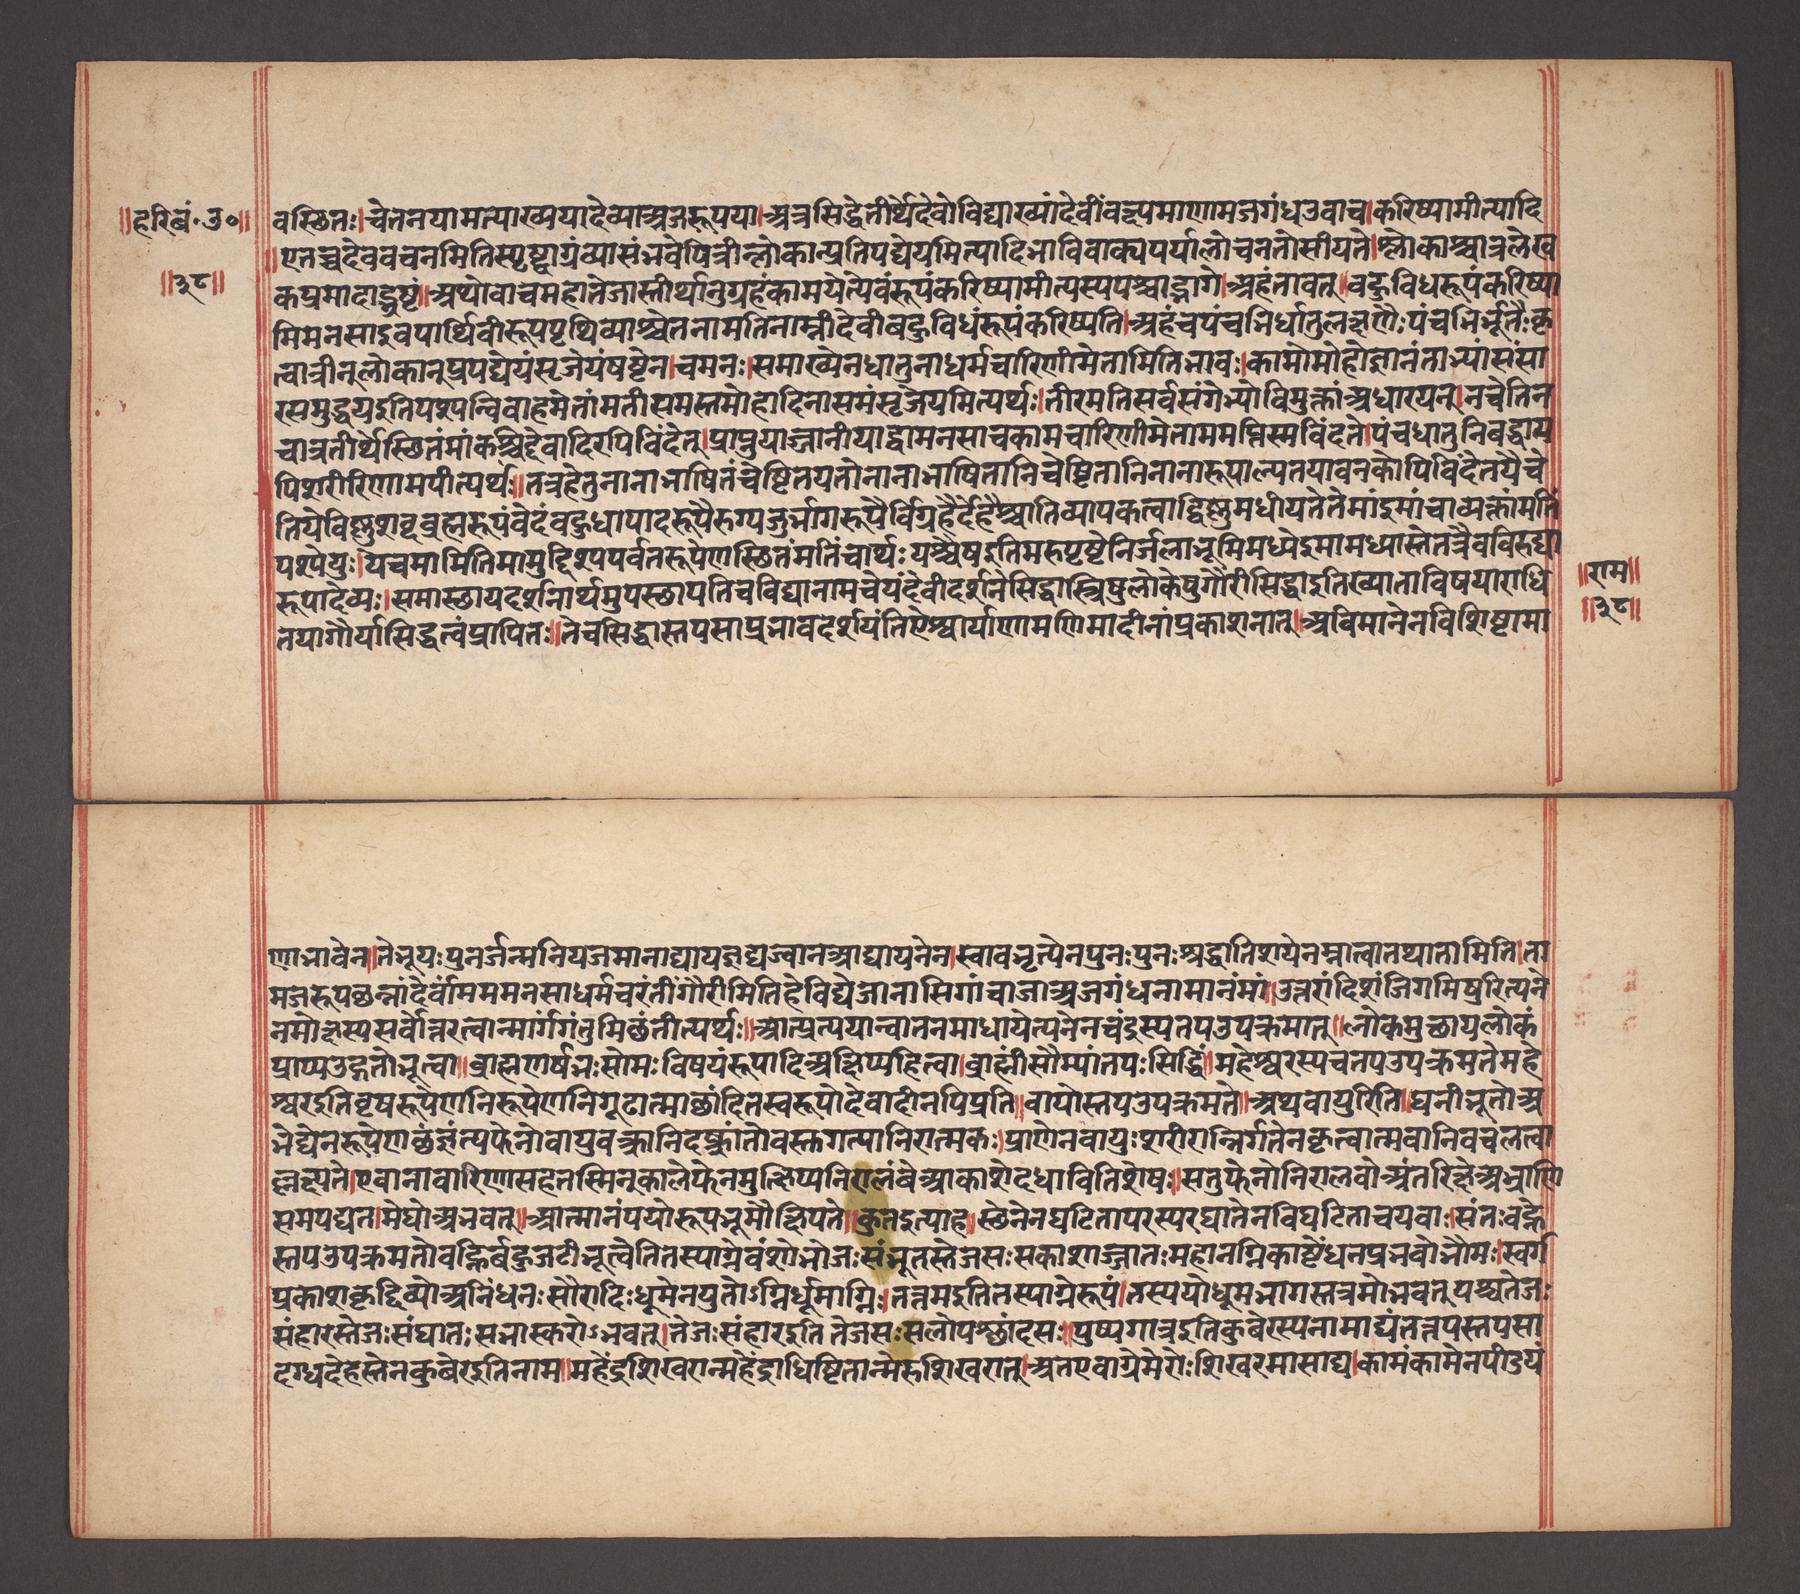 ॥हरिवं॰उ॰॥
॥३८॥
वस्थितः।चेतनयामत्याख्ययादेव्याअजरूपया।अत्रसिद्धेतीर्थेदेवोविद्याख्यांदेवींवक्ष्यमाणामजगंधउवाच।करिष्यामीत्यादि
॥एतच्चदेववचनमितिस्पृष्ट्वाग्रंव्यासंभवेपित्रीन्लोकान्प्रतिपद्येयमित्यादिभाविवाक्यपर्यालोचनतोसीयते।श्लोकाश्चात्रलेख
कप्रमादाद्भ्रष्टं।अथोवाचमहातेजास्तीर्थानुग्रहंकामयेत्येवंरूपंकरिष्यामीत्यस्यपश्चाद्भागे।अहंतावत्।बहुविधरूपंकरिष्या
मिमनसाइवपार्थिवीरूपपृथिव्याश्चेतनामतिनाम्नीदेवीबहुविधंरूपंकरिष्यति।अहंचपंचभिर्धातुलक्षणैःपंचभिर्भूतैःकृ
त्वात्रीन्लोकानुप्रपद्येयंसृजेयंषष्ठेन।चमनः।समाख्येनधातुनाधर्मचारिणीमेतामितिभावः।कामोमोहोज्ञानंताभ्यांसंसा
रसमुद्भयइतियश्पन्विवाहमेतांमतीसमस्तमोहादिनासमंसृजेयमित्यर्थः।तीरमतिसर्वसंगेभ्योविमुक्तांअधारयन्।नचेतिन
चात्रतीर्थेस्थितंमांकश्चिद्देवादिरपिविंदेत्।प्राप्नुयाज्जानीयाद्वामनसाचकामचारिणीमेताममग्निस्मविंदते।पंचधातुनिबद्धाम
पिशरीरिणामपीत्यर्थः॥तत्रहेतुनानाभाषितंचेष्टितयतोनानाभाषितानिचेष्टितानिनानारूपाल्पतयावनकोपिविंदेतयैचे
तियेविष्णुशब्दब्रह्मरूपंवेदंबहुधापादरूपैरुग्यजुर्भागरूपैर्विग्रहैर्देहैश्चातिव्यापकत्वाद्विष्णुमधीयतेतेमांइमांचाव्यक्तांमतिं
पश्येयुः।येचमामितिमामुद्दिश्यपर्वतरूपेणस्थितंमतिंचार्थःयश्चैषइतिमहपृष्टेनिर्जलाभूमिमध्येइमामध्यास्तेतत्रैवविरुद्धा
रूपादेव्यः।समास्थायदर्शनार्थमुपस्थापतिचविद्यानामचेयंदेवीदर्शनेसिद्धास्त्रिषुलोकेषुगौरीसिद्धाइतिख्याताविषयाराधि
तयागौर्यासिद्धत्वंप्रापितः॥तेचसिद्धास्तपसाप्रभावदर्शयंतिऐश्वार्याणामणिमादीनांप्रकाशनात्।अविमानेनविशिष्टामा
॥राम॥
॥३८॥
णाभावेन।तेभूयःपुनर्जन्मनियजमानाद्यायज्ञद्यज्वानआद्यायनेन।स्वावभृत्येनपुनःपुनःश्रद्धातिशयेनम्नात्वातथातामिति।ता
मजरूपछन्नांदेवींमममनसाधर्मचरंतींगौरीमितिहेविद्येजानासिगांचाजाअजगंधनामानंमां॥उत्तरांदिशंजिगमिषुरित्यने
नमोक्षस्यसर्वोत्तरत्वान्मार्गगंतुमिछंतीत्यर्थः॥आत्प्रत्ययान्वातनमाधायेत्यनेनचंद्रस्यतपउपक्रमात्॥लोकमुछायलोकं
प्राप्यउद्गतोभूत्वा॥ब्राह्मणर्षभःसोमःविषयंरूपादिअक्षिप्यहित्वा।ब्राह्मींसौम्यांतपःसिद्धिं॥महेश्वरस्यचतपउपक्रमतेमहे
श्वरइतिवृषरूपेणनिरूपेणनिगूढात्माछादितस्वरूपोदेवादीनपिप्रति॥वायोस्तपउपक्रमते॥अथवायुरिति।घनीभूतोअ
भेद्येनरूपेणछंज्ञंत्यफेनोवायुवक्रानिदष्क्रांतोवस्तगत्पानिरात्मकः।प्राणेनवायुःशरीरान्निर्गतेनकृत्वात्मवानिवचलत्वा
ल्लक्ष्यते।एवानावारिणासहतस्मिन्कालेफेनमुत्क्षिप्यनिरालंबेआकाशेदधावितिशेषः॥सतुफेनोनिरालवोअंतरिक्षेअभ्राणि
समपद्यत।मेघोअभवत्॥आत्मानंपयोरूपभूमौक्षिपते॥कुतइत्याह।स्छेनेनघटितापरस्परघातेनविघटिताचयवाः।संतःवह्ने
स्तपउपक्रमतोवह्निर्बहुजटीभूत्वेतितस्याग्नेवंशोभोजःसंभूतस्तेजसःसकाशाज्जातःमहानग्निकाष्टेंधनप्रभवोभौमः।स्वर्ग
प्रकाशकृद्दिव्योअनिंधनःसौरादिःधूमेनपुतोऽग्निर्धूमाग्निः।तत्तमइतितस्याग्नेरूपं।तस्ययोधूमभागस्तत्रमोभवत्पश्चतेजः
संहारस्तेजःसंघातःसभास्करोऽभवत्।तेजःसंहारइतितेजसःसलोपश्छांदसः॥पुष्यगात्रइतिकुबेरस्यनामाद्यंतत्तपस्तपसा
दग्धदेहस्तेनकुबेरइतिनाम॥महेंद्रशिखरान्महेंद्राधिष्टितान्मेरुशिखरात्।अतएवाग्रेमेरोःशिखरमासाद्य।कामंकामेनपीडयं